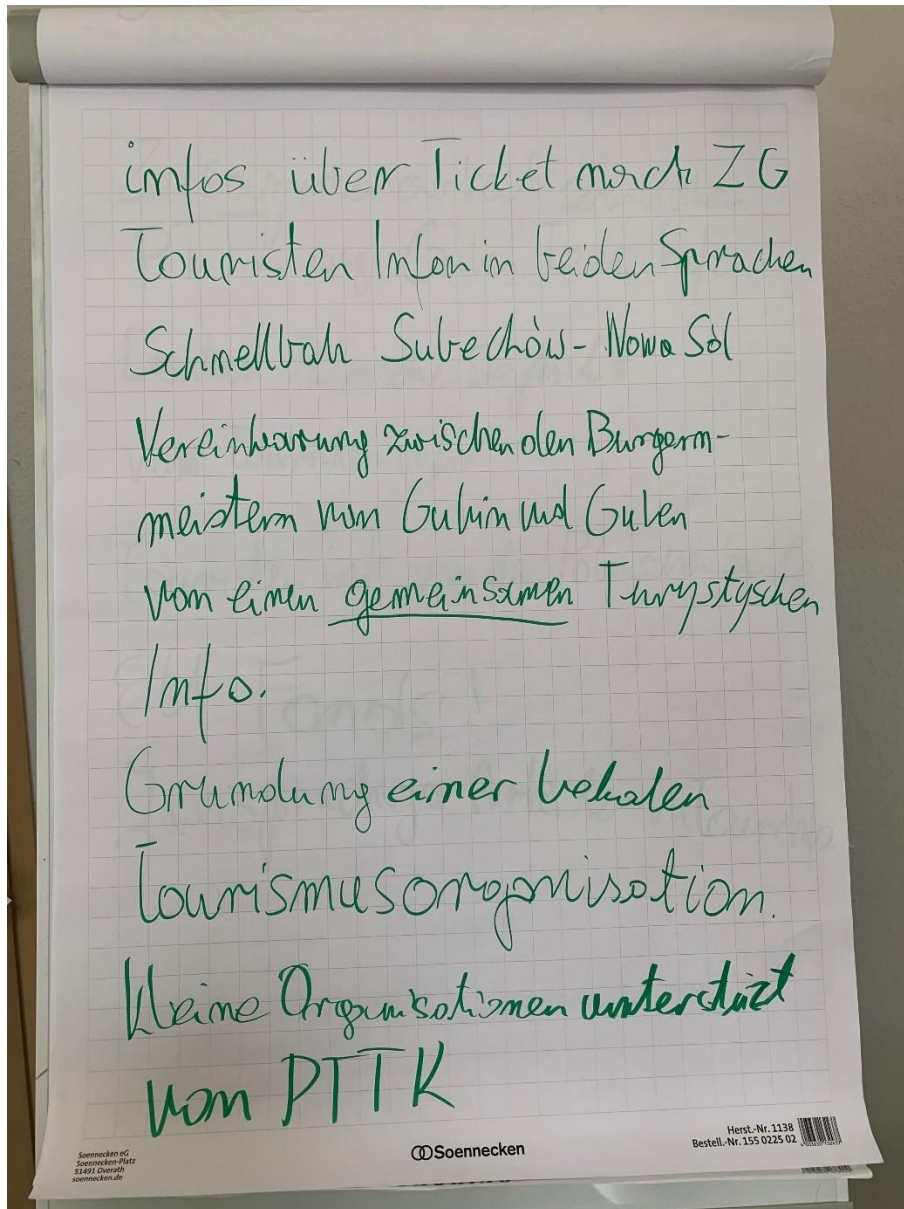 infos über Ticket nach ZG
Touristen Infon in beiden Sprachen
Schnellbah Subechów - Nowa Sól
Vereinbarung zwischen den Burgerm-
meistern von Gubin und Guben
von einen gemeinsamen Turystyschen
Info.
Grundung einer lokalen
Tourismusorganisation.
Kleine Organisationen unterstüzt
von PTTK
Soennecken eG
Soennecken-Platz
51491 Overath
soennecken.de
Soennecken
Herst.-Nr. 1138
Bestell.-Nr. 155 0225 02